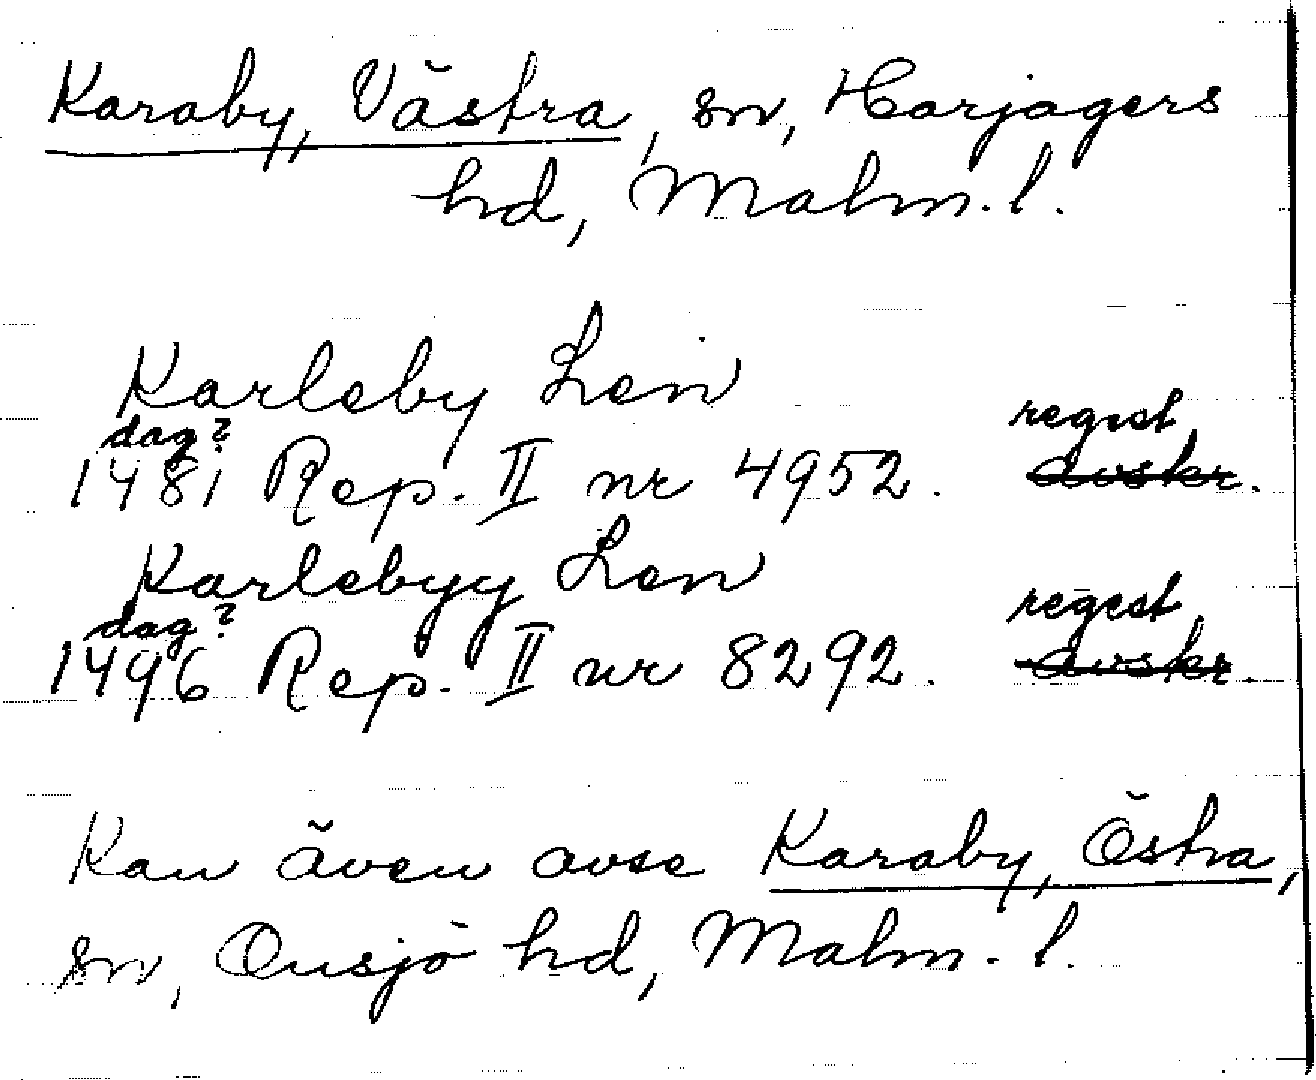 Karaby, Västra, sn, Harjagers
hd, Malm. l.
Karleby Len
dag? regest
1481 Rep. II nr 4952. avskr.
Karlebyy Len
dag? regest
1496 Rep. II nr 8292. avskr.
Kan även avse Karaby, Östra,
sn, Onsjö hd, Malm. l.